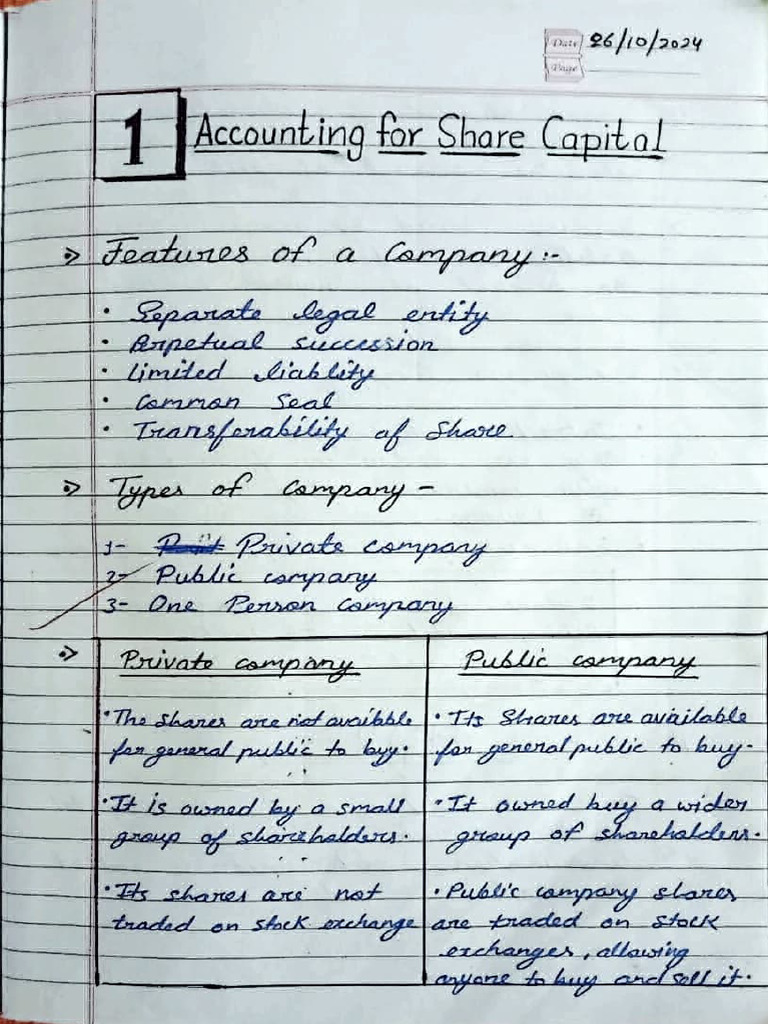 Date 26/10/2024
Page
1 Accounting for Share Capital
Features of a Company :-
• Separate legal entity
• Perpetual succession
• Limited liablity
• Common Seal
• Transferability of Share
Types of Company -
1- Private company
2- Public company
3- One Person Company
Private company
• The shares are not availbble
for general public to buy.
• It is owned by a small
group of shareholders.
• Its shares are not
traded on stock exchange
Public company
• Its Shares are available
for general public to buy.
• It owned buy a wider
group of shareholders.
• Public company shares
are traded on stock
exchanges, allowing
anyone to buy and sell it.